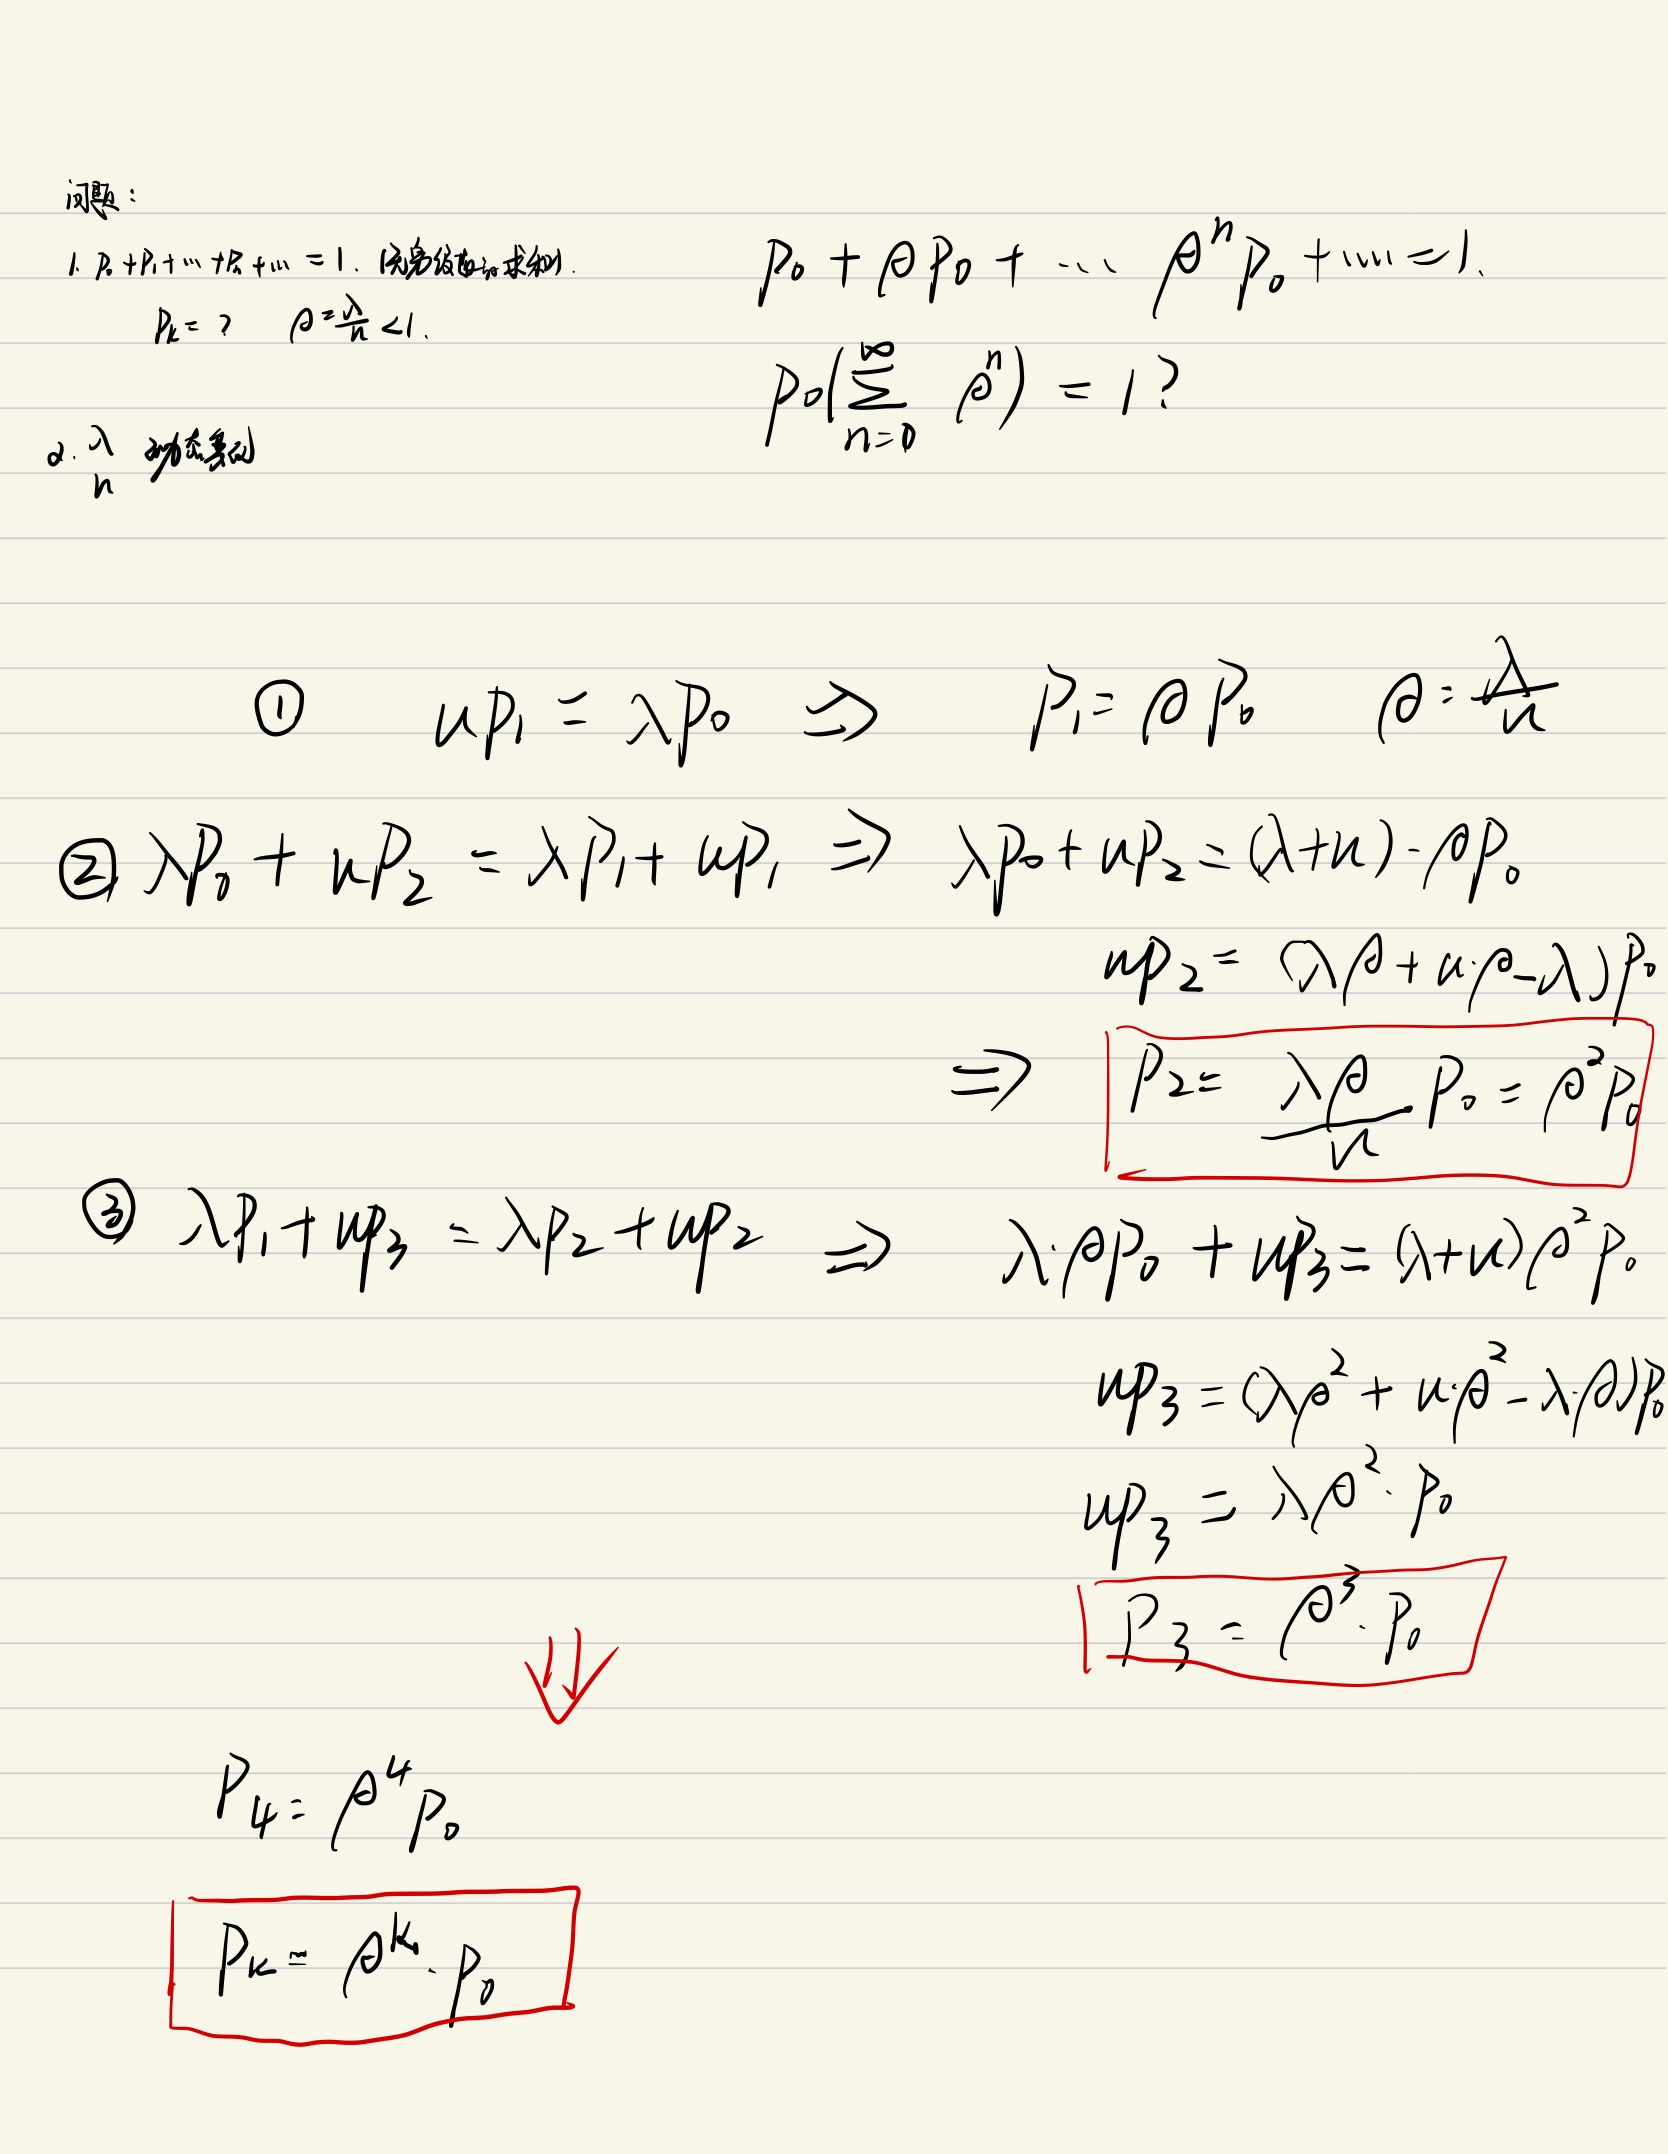 问题:
1. P₀+P₁+…+Pₖ+… = 1. (无穷级数的求和).
Pₖ = ? ρ = λ/u < 1.
2. λ u 动态系
P₀ + ρP₀ + … ρⁿP₀ + …… = 1.
P₀(∑_{n=0}^{∞} ρⁿ) = 1?
① uP₁ = λP₀ ⇒ P₁ = ρP₀ ρ = λ/u
② λP₀ + uP₂ = λP₁ + uP₁ ⇒ λP₀ + uP₂ = (λ+u)·ρP₀
uP₂ = (λρ + u·ρ - λ)P₀
⇒ P₂ = λρ/u P₀ = ρ²P₀
③ λP₁ + uP₃ = λP₂ + uP₂ ⇒ λ·ρP₀ + uP₃ = (λ+u)ρ²P₀
uP₃ = (λρ² + u·ρ² - λ·ρ)P₀
uP₃ = λρ²·P₀
P₃ = ρ³·P₀
⇓
P₄ = ρ⁴P₀
Pₖ = ρᵏ·P₀